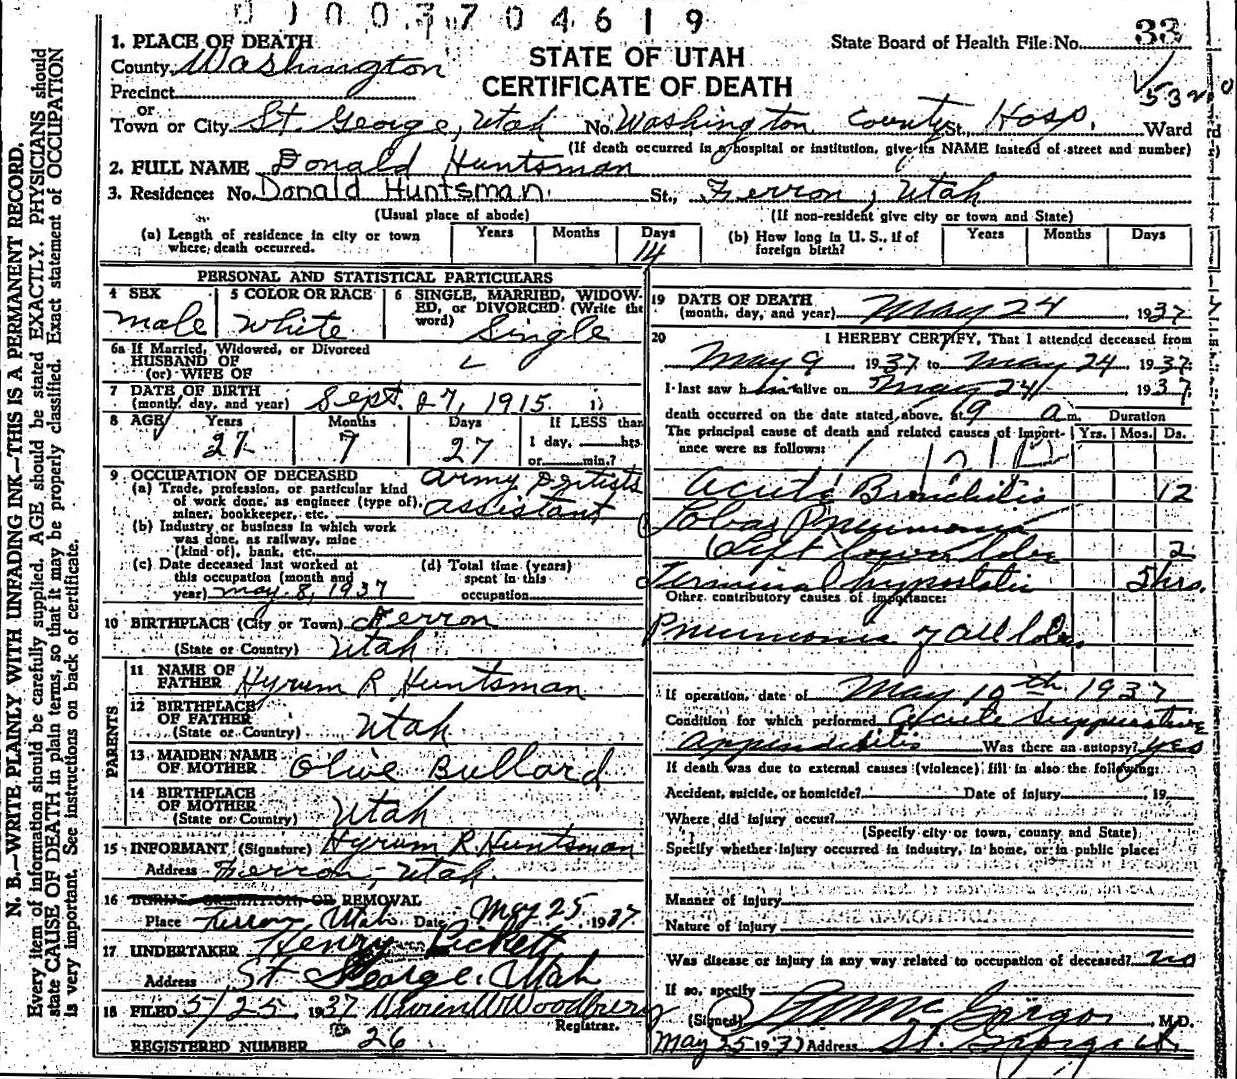 0 0 0 3 7 0 4 6 1 9
1. PLACE OF DEATH
STATE OF UTAH
CERTIFICATE OF DEATH
State Board of Health File No. 33
County Washington
Precinct
or
Town or City St. George, Utah No. Washington County St., Hosp. Ward
(If death occurred in a hospital or institution, give its NAME instead of street and number)
2. FULL NAME Donald Huntsman
3. Residence: No. Donald Huntsman St., Ferron, Utah
(Usual place of abode) (If non-resident give city or town and State)
(a) Length of residence in city or town where death occurred. Years Months Days 14
(b) How long in U. S., if of foreign birth? Years Months Days
PERSONAL AND STATISTICAL PARTICULARS
4 SEX male
5 COLOR OR RACE White
6 SINGLE, MARRIED, WIDOWED, or DIVORCED (Write the word) Single
6a If Married, Widowed, or Divorced
HUSBAND OF
(or) WIFE OF
7 DATE OF BIRTH
(month, day, and year) Sept. 27, 1915
8 AGE Years 21 Months 7 Days 27
If LESS than
1 day, hrs.
or min.?
9 OCCUPATION OF DECEASED
(a) Trade, profession, or particular kind of work done, as engineer (type of), miner, bookkeeper, etc. Army Dentists assistant
(b) Industry or business in which work was done, as railway, mine (kind of), bank, etc.
(c) Date deceased last worked at this occupation (month and year) may 8, 1937
(d) Total time (years) spent in this occupation
10 BIRTHPLACE (City or Town) Ferron
(State or Country) Utah
PARENTS
11 NAME OF FATHER Hyrum R Huntsman
12 BIRTHPLACE OF FATHER
(State or Country) Utah
13 MAIDEN NAME OF MOTHER Olive Bullard
14 BIRTHPLACE OF MOTHER
(State or Country) Utah
15 INFORMANT (Signature) Hyrum R. Huntsman
Address Ferron, Utah.
16 BURIAL CREMATION OR REMOVAL
Place Ferron Utah Date May 25 1937
17 UNDERTAKER Henry Pickett
Address St George, Utah
18 FILED 5/25, 1937
Registrar.
REGISTERED NUMBER 26
19 DATE OF DEATH
(month, day, and year) May 24 1937
20 I HEREBY CERTIFY, That I attended deceased from
May 9 1937 to May 24 1937
I last saw him alive on May 24 1937
death occurred on the date stated above, at 9 a m. Duration
The principal cause of death and related causes of importance were as follows: Yrs. Mos. Ds.
Acute Bronchitis 12
Lobar Pneumonia
Left lower lobe 2
Terminal hypostatic 5 hrs.
Other contributory causes of importance:
Pneumonia of all lobes
If operation, date of May 10th 1937
Condition for which performed Acute Suppurative
appendicitis Was there an autopsy? yes
If death was due to external causes (violence) fill in also the following:
Accident, suicide, or homicide? Date of injury 19
Where did injury occur?
(Specify city or town, county and State)
Specify whether injury occurred in industry, in home, or in public place:
Manner of injury
Nature of injury
Was disease or injury in any way related to occupation of deceased? no
If so, specify
(Signed) M.D.
May 25 1937 Address St. George Ut.
N. B.—WRITE PLAINLY WITH UNFADING INK—THIS IS A PERMANENT RECORD.
Every item of information should be carefully supplied. AGE should be stated EXACTLY. PHYSICIANS should
state CAUSE OF DEATH in plain terms, so that it may be properly classified. Exact statement of OCCUPATION
is very important. See instructions on back of certificate.